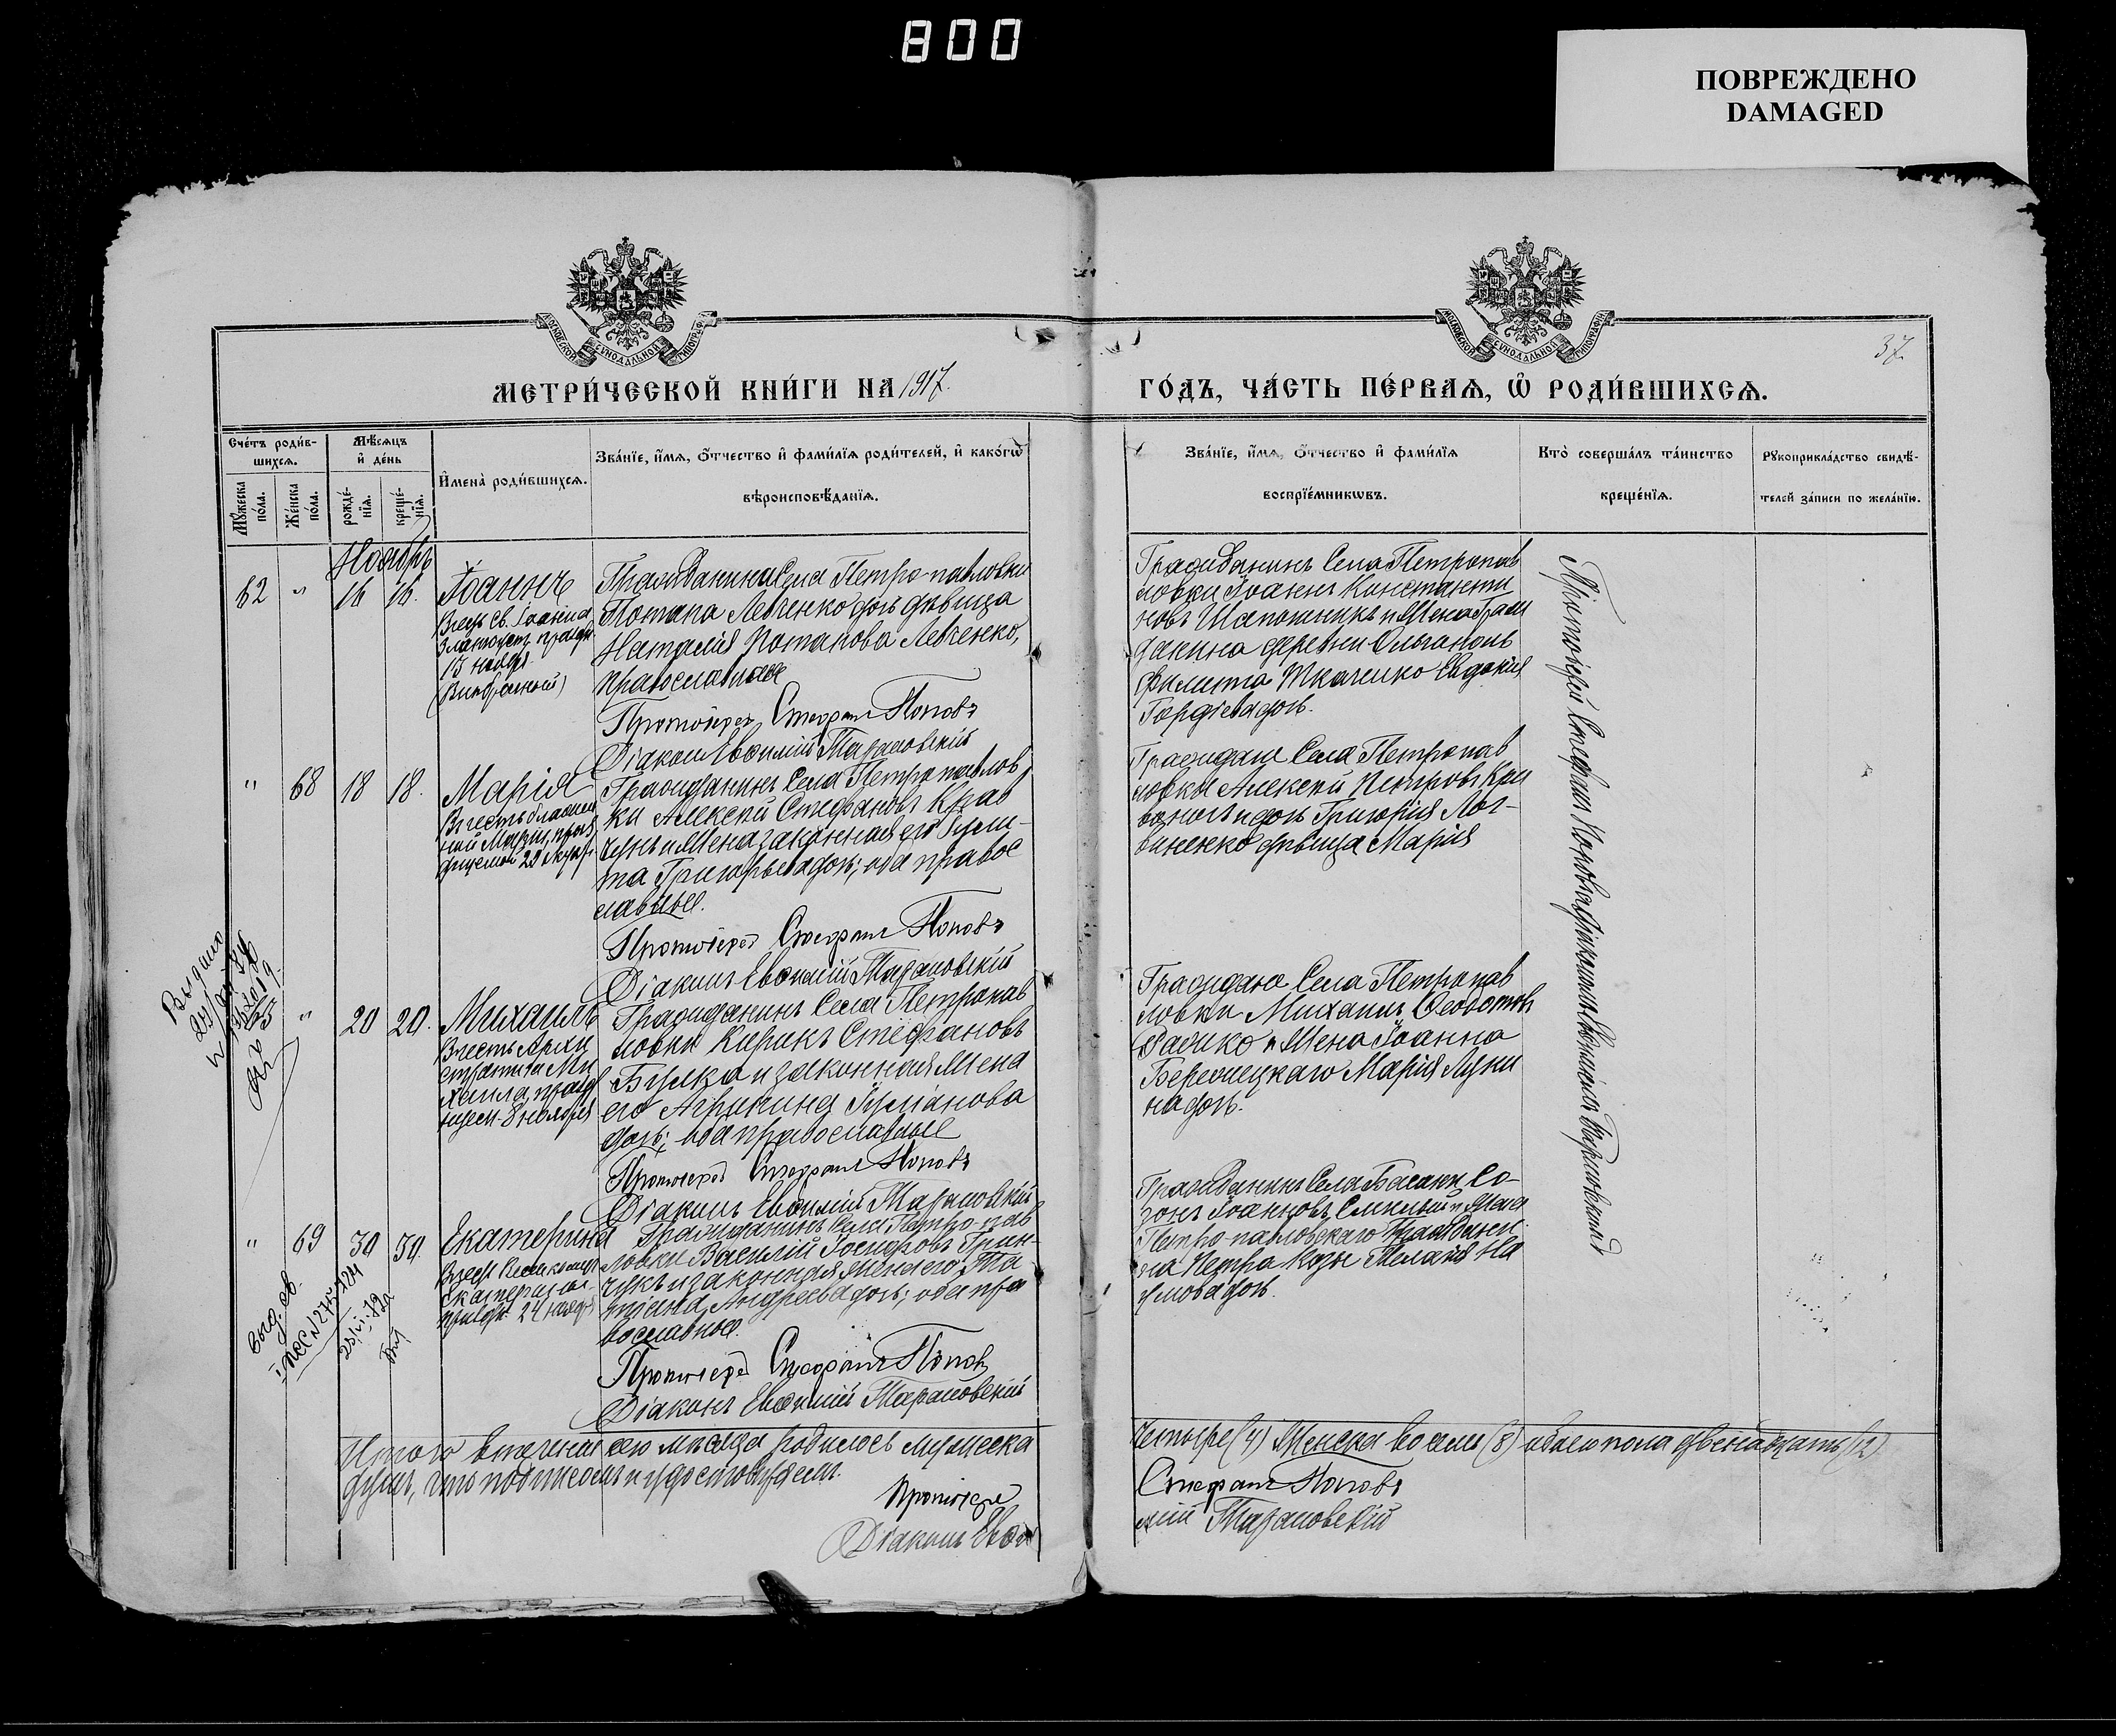 800
ПОВРЕЖДЕНО
DAMAGED
37.
МЕТРИ́ЧЕСКОЙ КНИ́ГИ НА 1917.
ГО́ДЪ, ЧА́СТЬ ПЕ́РВАѦ, Ѽ РОДИ́ВШИХСѦ.
Сче́тъ роди́в-
шихсѧ.
Мꙋ́жеска по́ла.
Же́нска по́ла.
Мѣ́сѧцъ
и҆ де́нь
рожде́-
нїѧ.
креще́-
нїѧ.
И҆мена̀ роди́вшихсѧ.
Зва́нїе, и҆́мѧ, ѻ҆́тчество и҆ фами́лїѧ роди́телей, и҆ како́гѡ
вѣроисповѣ́данїѧ.
Зва́нїе, и҆́мѧ, ѻ҆́тчество и҆ фами́лїѧ
воспрїе́мникѡвъ.
Кто̀ соверша́лъ та́инство
креще́нїѧ.
Рꙋкоприкла́дство свидѣ́-
телей за́писи по жела́нїю.
Ноябрь
62 " 16 16.
Іоаннъ
Въ честь Св. Іоанна
Златоуст. празд.
13 ноября
Гражданина Села Петро-павловки
Потапа Левченко дочь дѣвица
Наталія Потапова Левченко,
православная
Протоіерей Стефанъ Поповъ
Діаконъ Евѳимій Тарановскій
Гражданинъ Села Петропав
ловки Іоаннъ Константи
новъ Шапошникъ и жена Граж
данина деревни Ольгополь
Филиппа Ткаченко Евдокія
Гордіева дочь.
" 68 18 18.
Марія
Гражданинъ Села Петропавлов
ки Алексѣй Стефановъ Крав
чукъ и жена законная его Іули-
та Григорьева дочь; оба правос
лавные.
Протоіерей Стефанъ Поповъ
Діаконъ Евѳимій Тарановскій
Граждане Села Петропав
ловки Алексѣй Петровъ Кри
воногъ и дочь Григорія Лог-
виненко дѣвица Марія
65 " 20 20.
Михаилъ
Въ честь Архи
стратига Ми
хаила, празд
нуем. 8 ноября
Гражданинъ Села Петропав
ловки Кирикъ Стефановъ
Булкза и законная жена
его Агрипина Іуліанова
дочь; оба православные
Протоіерей Стефанъ Поповъ
Діаконъ Евѳимій Тарановскій
Граждане Села Петропав
ловки Михаилъ Ѳеодотовъ
Радико и жена Іоанна
Березицкаго Марія Луки
на дочь.
" 69 30 30.
Екатерина
Въ честь Великомуч
Екатерины
празд. 24 ноября
Гражданинъ Села Петро-пав
ловки Василій Іосифовъ Грин-
чукъ и законная жена его Та
тіана Андреева дочь; оба пра
вославные.
Протоіерей Стефанъ Поповъ
Діаконъ Евѳимій Тарановскій
Гражданинъ Села Басани Со-
зонъ Іоанновъ и жена
Петро-павловскаго Граждани
на Петра Козы Меланія На
умова дочь.
Протоіерей Стефанъ Поповъ съ Діакономъ Евѳиміемъ Тарановскимъ
Итого втеченіи сего мѣсяца родилось мужеска
четыре (4) Женска восемь (8) обоего пола двенадцать (12)
душъ, что подписомъ и удостовѣряемъ.
Протоіерей Стефанъ Поповъ
Діаконъ Евѳимій Тарановскій